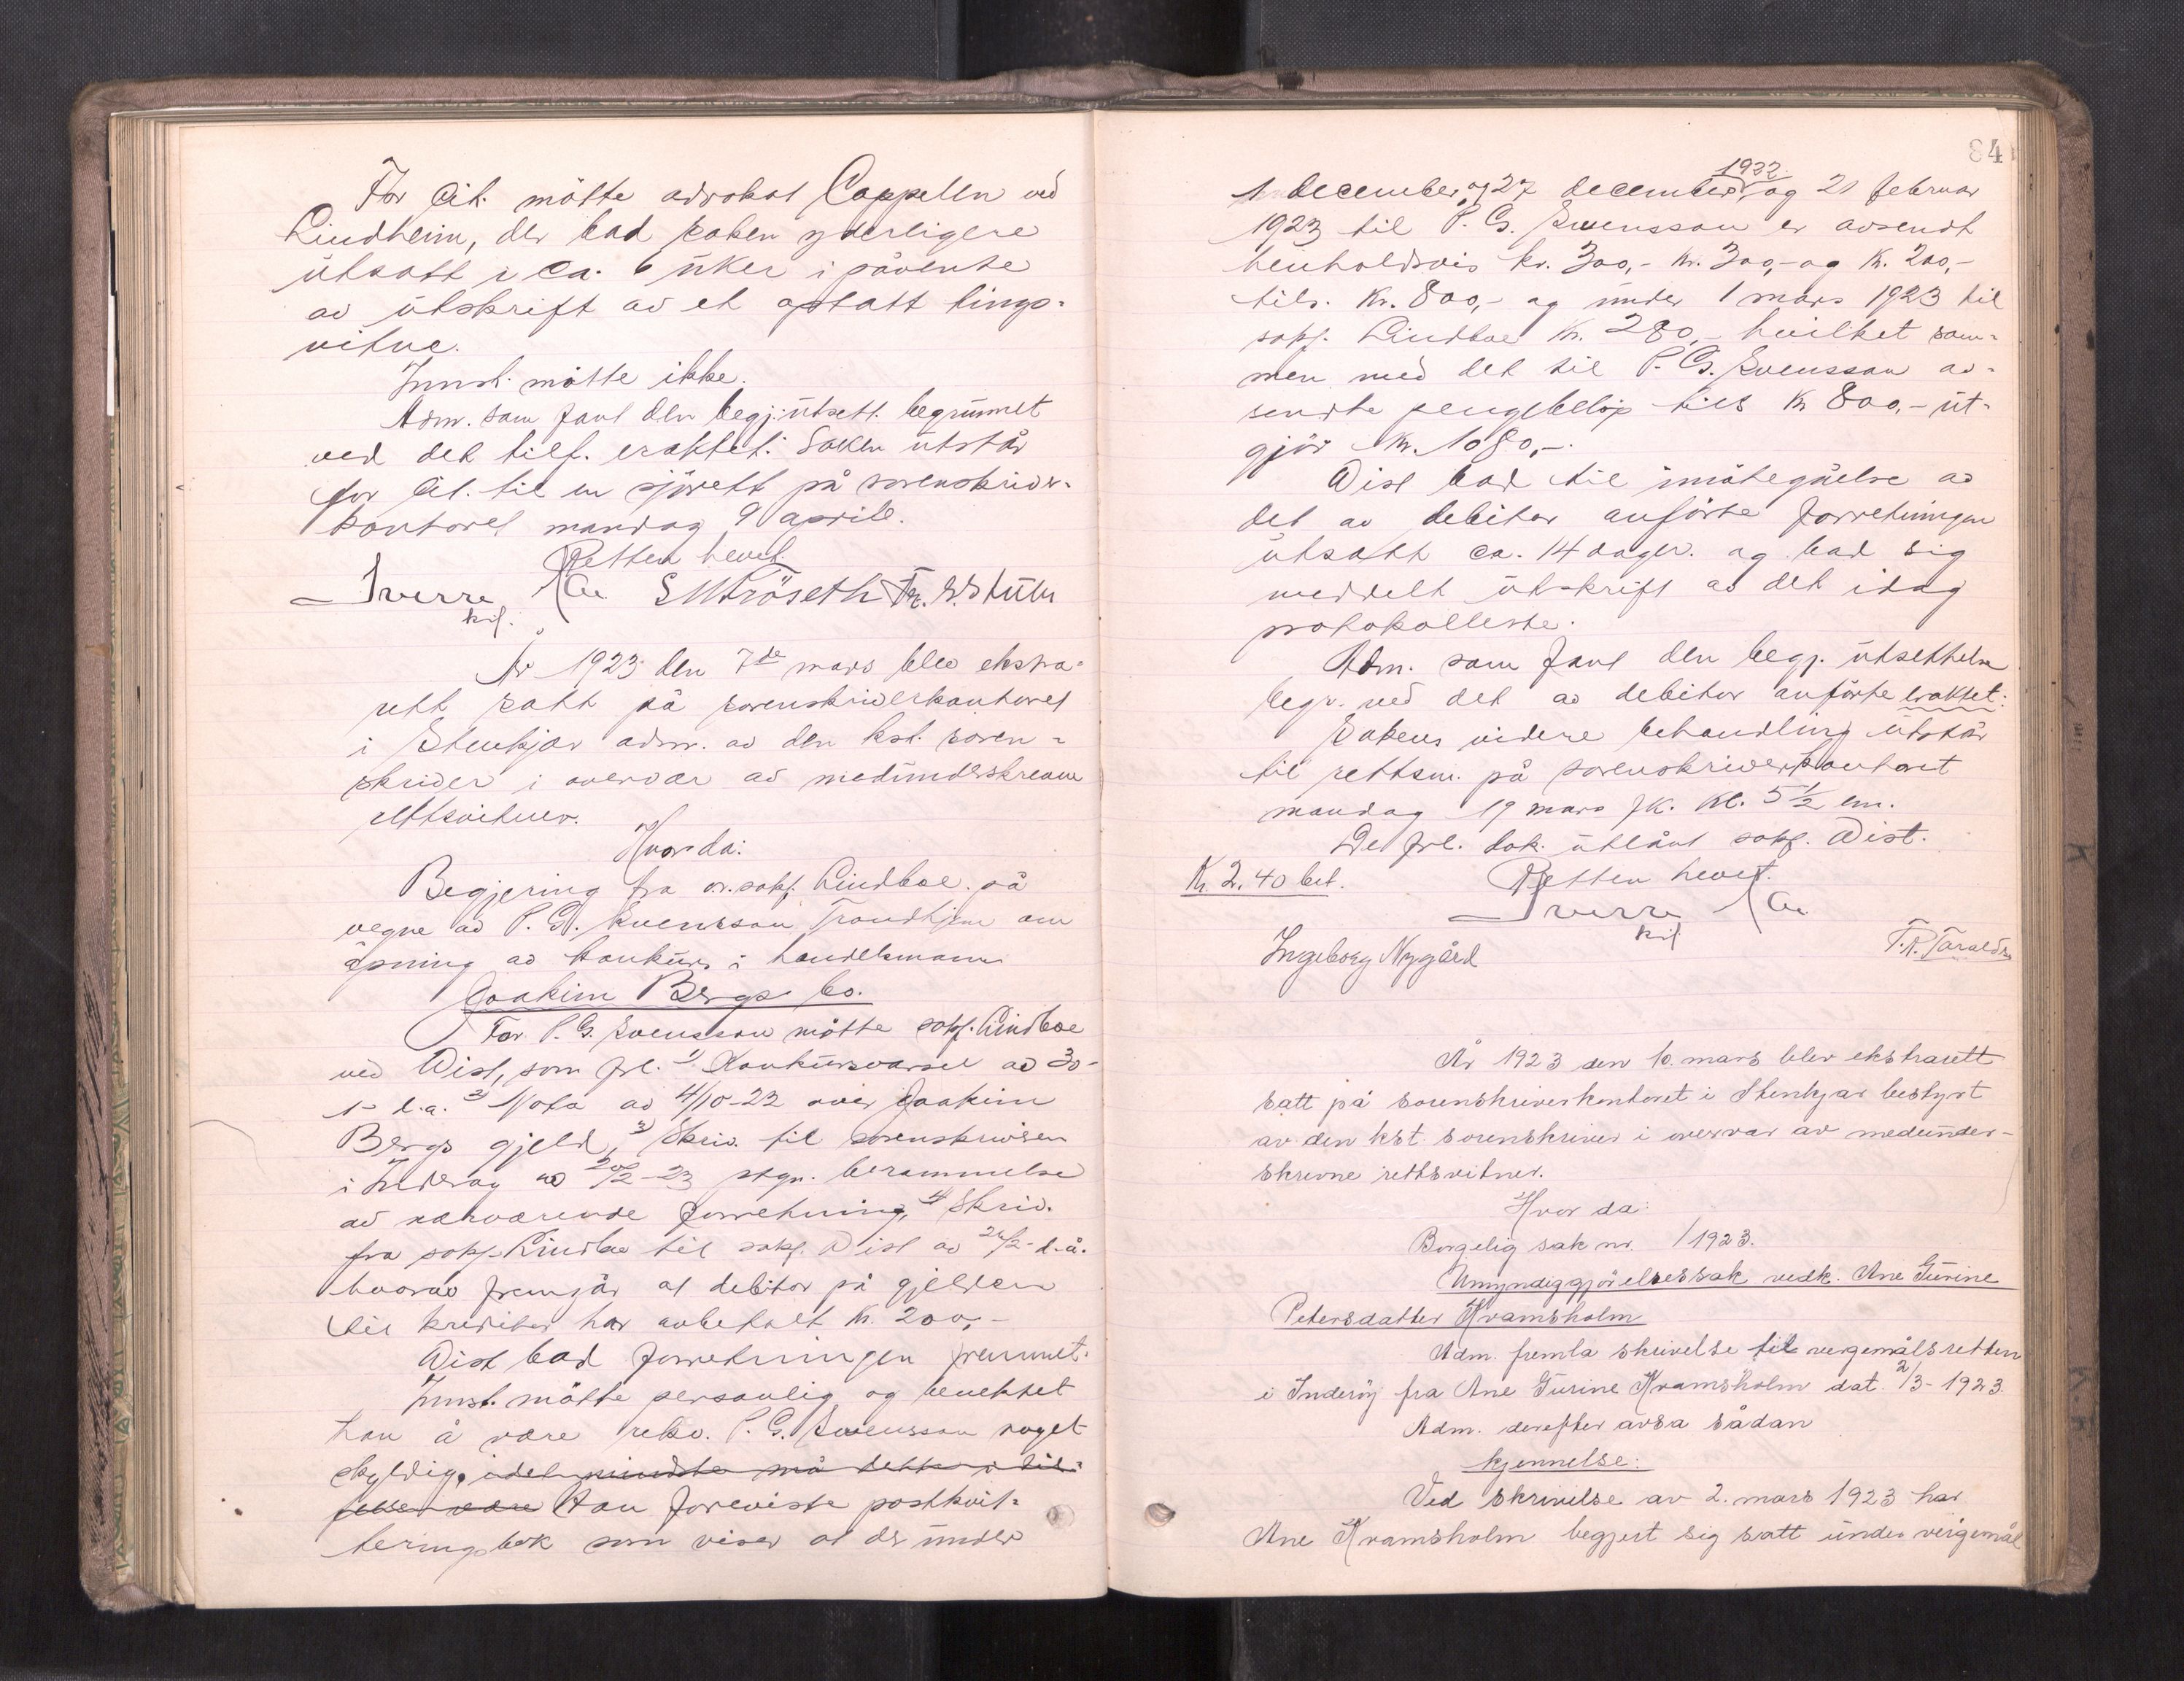 For Cit. mötte advokat Cappelen ved
Lindheim, der bad saken yderligere
utsatt i ca. 6 uker i påvente
av utskrift av et optatt tings-
vitne.
Innst. mötte ikke.
Adm. som fant den begj. utsett. begrunnet
ved det tilf. eraktet: Saken utstår
for Cit. til en sjörett på sorenskriver-
kontoret mandag 9 april.
Retten hevet.
Sverre
kst.
År 1923 den 7de mars blev ekstra-
rett satt på sorenskriverkontoret
i Stenkjær adm. av den kst. soren-
skriver i overvær av medunderskrevne
rettsvitner.
Hvor da:
Begjering fra or. sakf. Lindboe på
vegne av P. G. Svensson Trondhjem om
åpning av konkurs i handelsmann
Joakim Bergs bo.
For P. G. Svensson mötte sakf. Lindboe
ved Wist, som frl. 1) Konkursvarsel av 30-
1- d.a. 2) Nota av 4/10-22 over Joakim
Bergs gjeld, 3) Skriv. til sorenskriveren
i Inderøy av 20/2-23 ptgn. berammelse
av nærværende forretning, 4) Skriv.
fra sakf. Lindboe til sakf. Wist av 26/2- d.å.
hvorav fremgår at debitor på gjelden
til kreditor har avbetalt kr. 200,-
Wist bad forretningen fremmet.
Innst. mötte personlig og benektet
han å være rekv. P. G. Svensson noget
skyldig, i det mindste må dette i til-
felle være Han foreviste postkvit-
teringsbok som viser at der under
84
1 december, og 27 december 1922 og 21 februar
1923 til P. G. Svensson er avsendt
henholdsvis kr. 300,- kr. 300,- og kr. 200,-
tils. kr. 800,- og under 1 mars 1923 til
sakf. Lindboe kr. 280,- hvilket sam-
men med det til P. G. Svensson av-
sendte pengebelöp tils kr 800,- ut-
gjör kr. 1080,-.
Wist bad til imötegåelse av
det av debitor anförte forretningen
utsatt ca. 14 dager. og bad sig
meddelt utskrift av det idag
protokollerte.
Adm. som fant den begj. utsettelse
begr. ved det av debitor anförte eraktet:
Sakens videre behandling utstår
til rettsm. på sorenskriverkontoret
mandag 19 mars fk. kl. 5 1/2 em.
De frl. dok. utlånt sakf. Wist.
Kr. 2.40 bet. Retten hevet.
Sverre
kst
Ingeborg Nygård
År 1923 den 10. mars blev ekstrarett
satt på sorenskriverkontoret i Stenkjær bestyrt
av den kst. sorenskriver i overvær av medunder-
skrevne rettsvitner.
Hvor da:
Borgelig sak nr. /1923.
Umyndiggjörelsessak vedk. Ane Gurine
Petersdatter Kvamsholm
Adm. fremla skrivelse til vergemålsretten
i Inderöy fra Ane Gurine Kvamsholm dat. 2/3-1923.
Adm. derefter avsa sådan
kjennelse:
Ved skrivelse av 2. mars 1923 har
Ane Kvamsholm begjert sig satt under vergemål